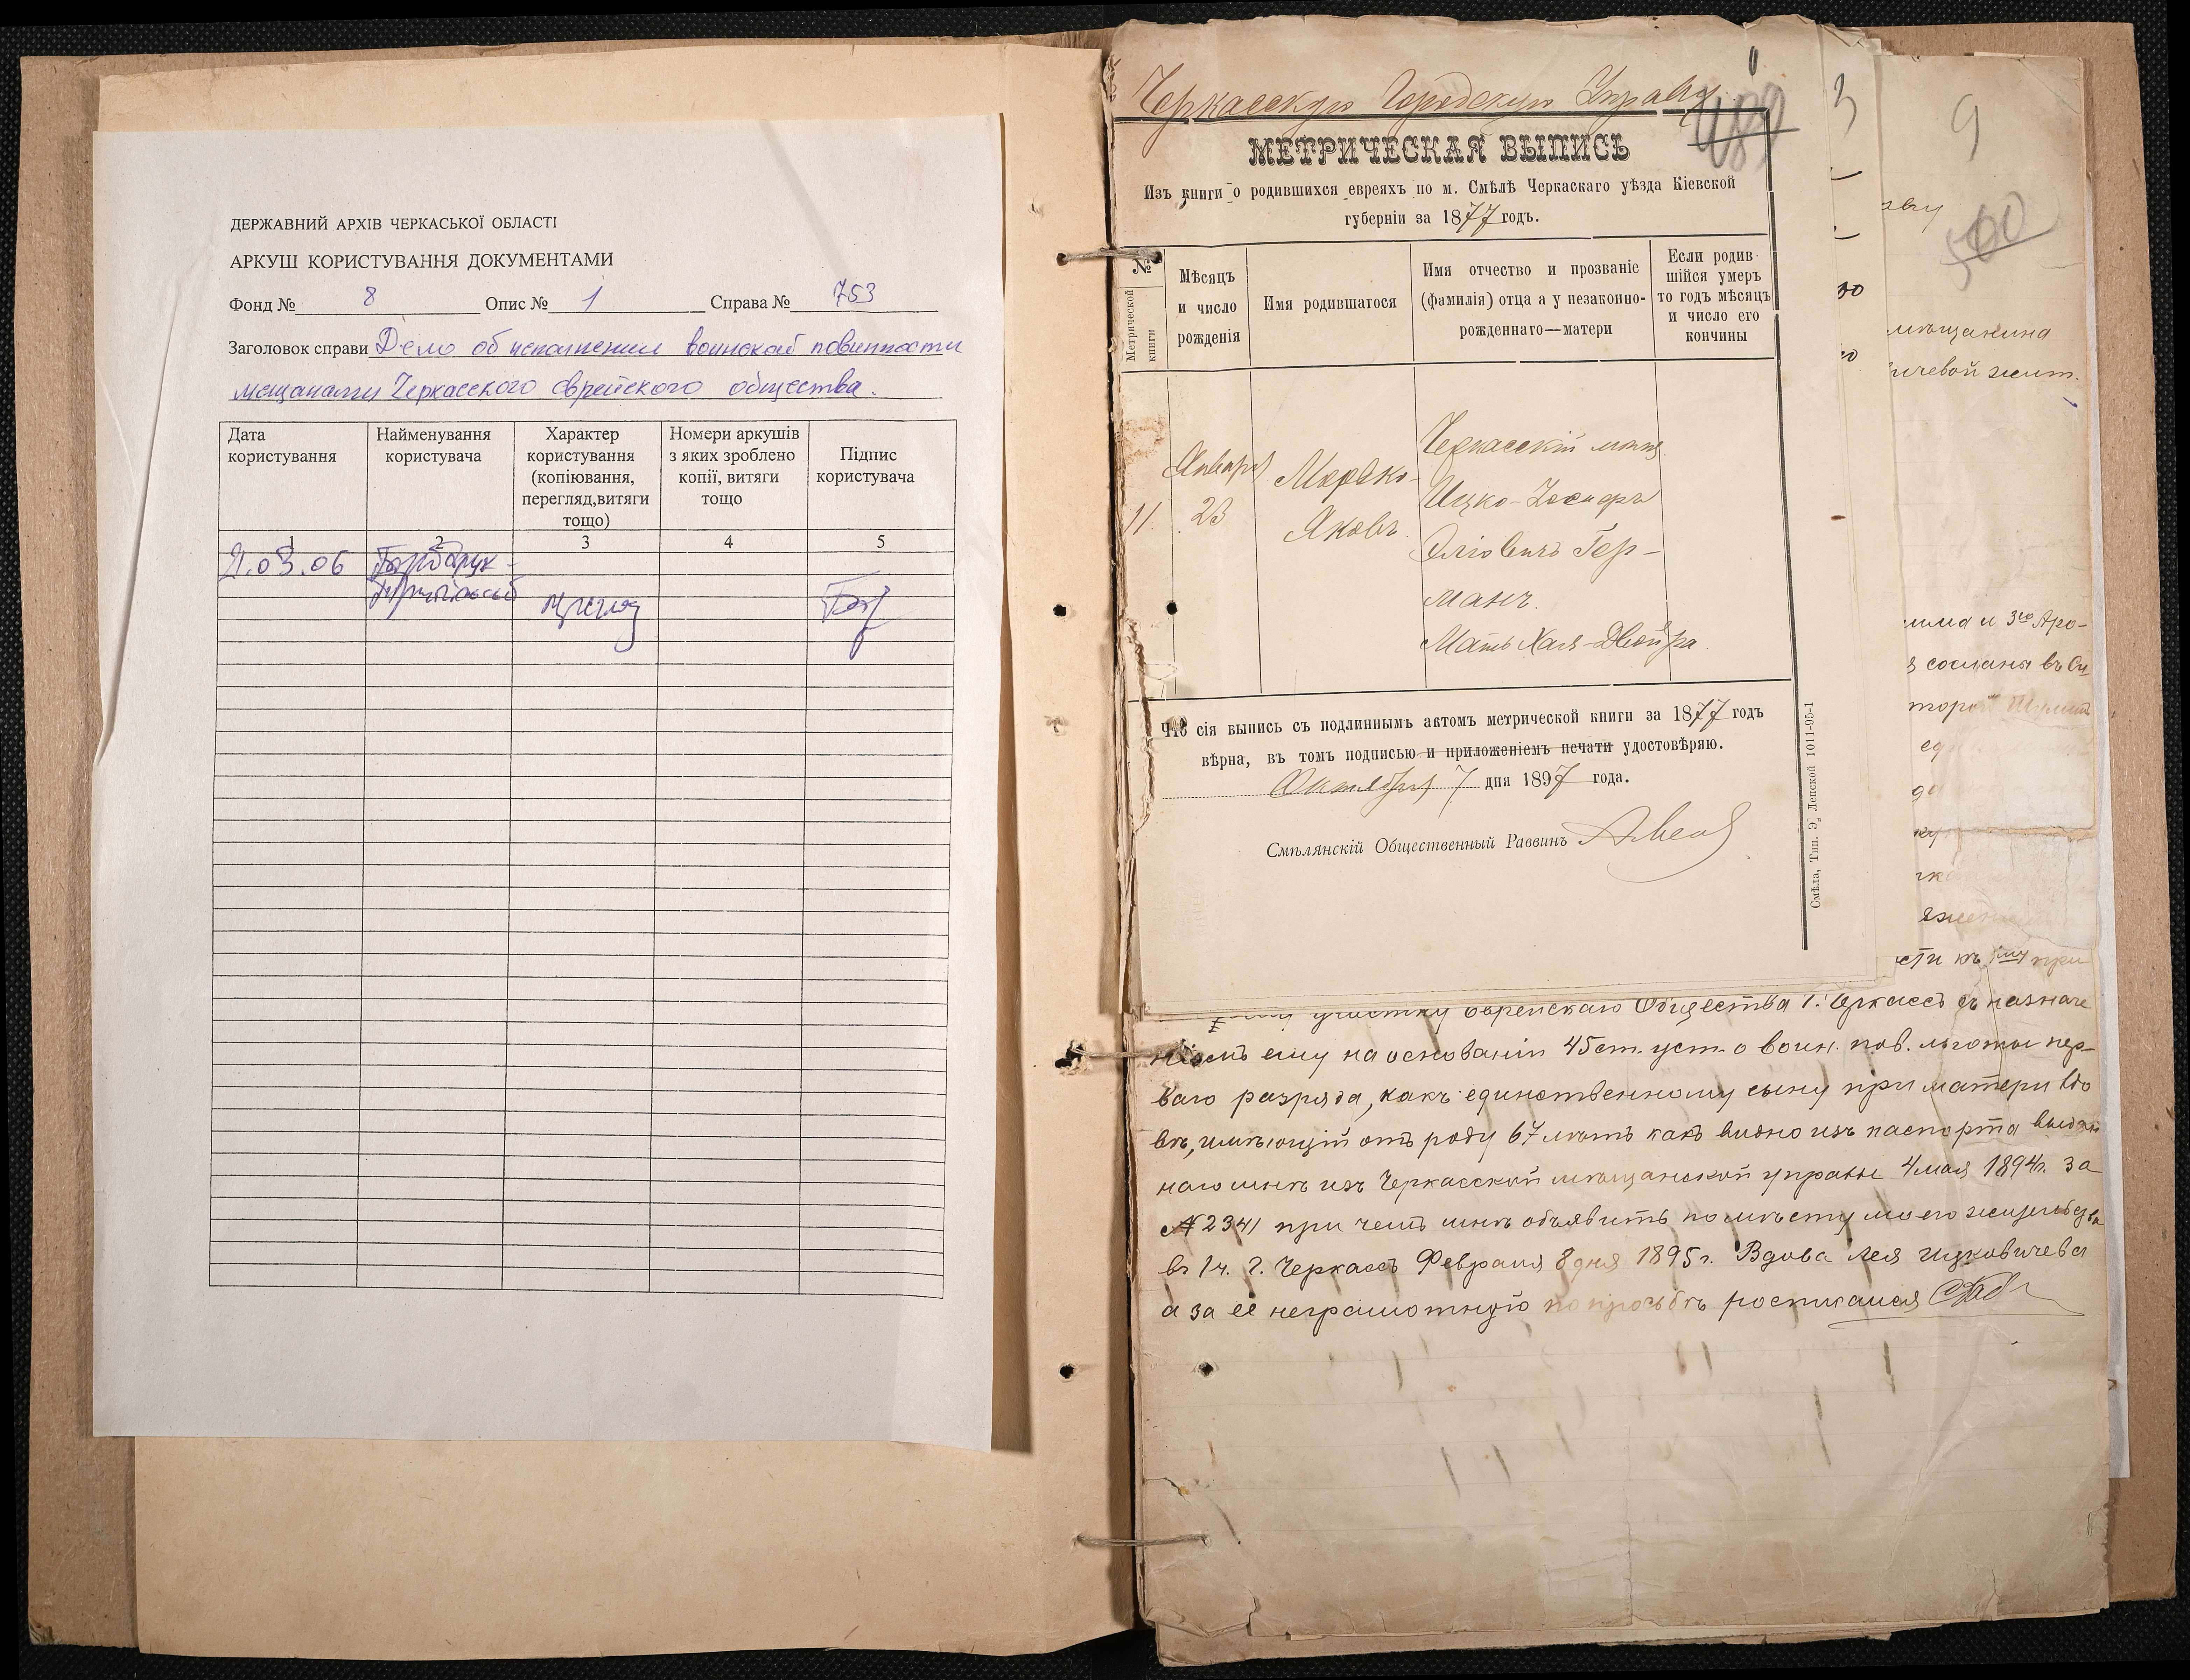 ДЕРЖАВНИЙ АРХІВ ЧЕРКАСЬКОЇ ОБЛАСТІ
АРКУШ КОРИСТУВАННЯ ДОКУМЕНТАМИ
Фонд № 8 Опис № 1 Справа № 753
Заголовок справи Дело об исполнении воинской повинности
мещанами Черкасского еврейского общества.
Дата користування
Найменування користувача
Характер користування (копіювання, перегляд,витяги тощо)
Номери аркушів з яких зроблено копії, витяги тощо
Підпис користувача
1 2 3 4 5
03.06
Черкасскую Городскую Управу
МЕТРИЧЕСКАЯ ВЫПИСЬ
Изъ книги о родившихся евреяхъ по м. Смѣлѣ Черкаскаго уѣзда Кіевской
губерніи за 1877 годъ.
№ Метрической книги
Мѣсяцъ и число рожденія
Имя родившагося
Имя отчество и прозваніе (фамилія) отца а у незаконно-рожденнаго—матери
Если родив-шійся умеръ то годъ мѣсяцъ и число его кончины
11.
Января 23
Мордко-
Яковъ
Черкасскій мѣщ.
Ицко-
Гер-
манъ.
Мать Хая-Двойра
Что сія выпись съ подлиннымъ актомъ метрической книги за 1877 годъ
вѣрна, въ томъ подписью и приложеніемъ печати удостовѣряю.
Октября 7 дня 1897 года.
Смѣлянскій Общественный Раввинъ
Смѣла, Тип. Э. Ленской 1011-95-1
3
9
500
мѣщанина
ичевой жит.
и 3го Аро-
сосланы въ Си
сти къ при
участку Еврейскаго Общества г. Черкассъ съ назначе
ніемъ ему на основаніи 45 ст. уст. о воин. пов. льготы пер-
ваго разряда, какъ единственному сыну при матери вдо
вѣ, имѣющій отъ роду 67 лѣтъ какъ видно изъ паспорта выдан
наго мнѣ изъ Черкасской мѣщанской управы 4 мая 1894 г. за
№ 2341 при чемъ мнѣ объявить по мѣсту моего жительства
въ 1 ч. г. Черкассъ Февраля 8 дня 1895 г. Вдова Лея Ицковичева
а за её неграмотную по просьбѣ росписался